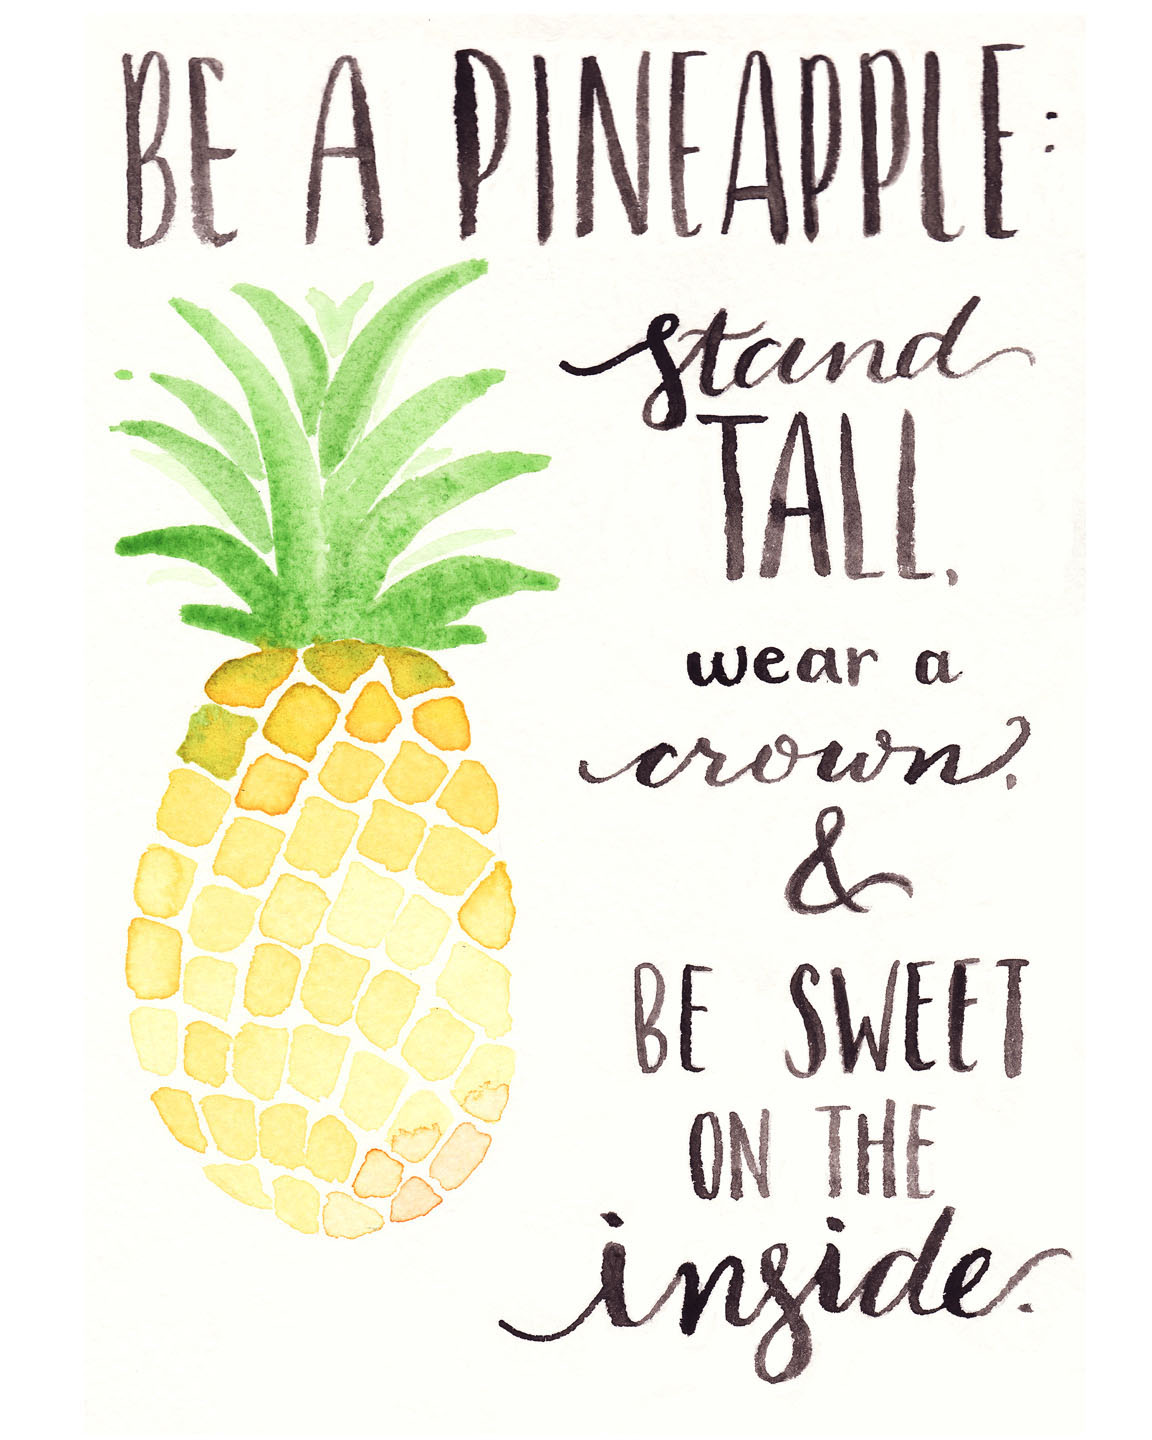 BE A PINEAPPLE:
stand
TALL,
wear a
crown,
&
BE SWEET
ON THE
inside.